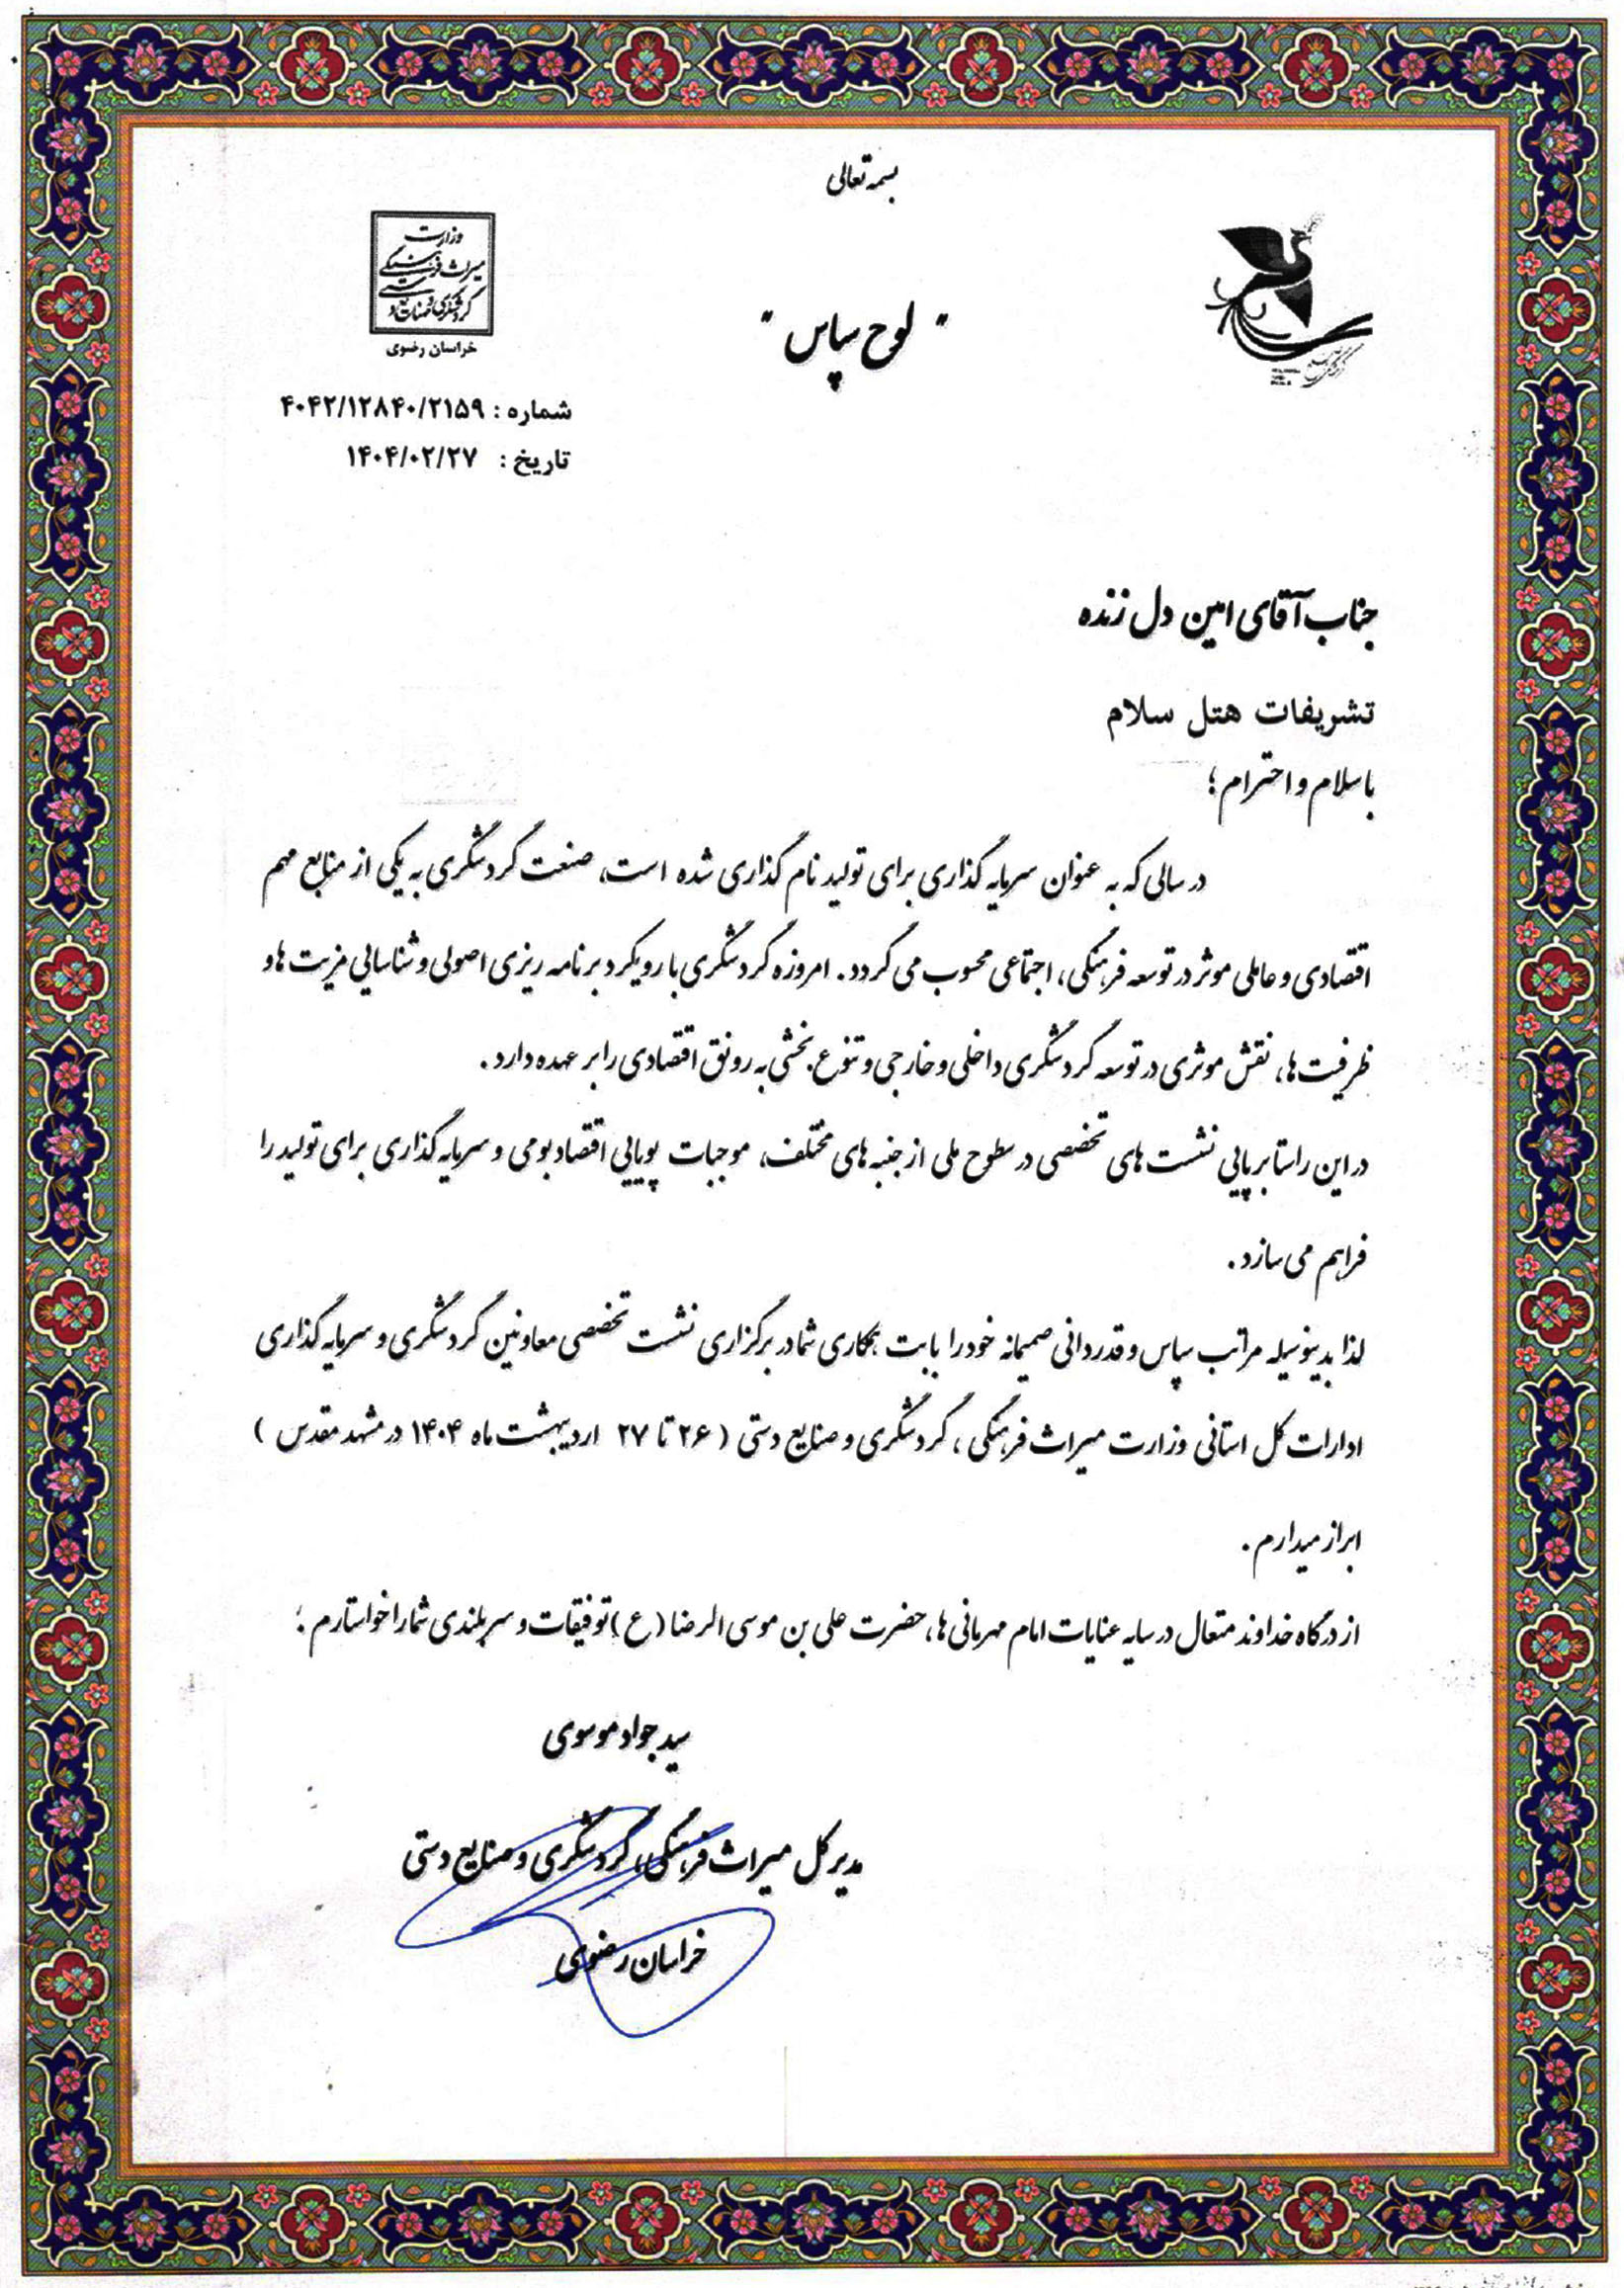 بسمه تعالی
وزارت
میراث فرهنگی
گردشگری و صنایع دستی
خراسان رضوی
" لوح سپاس "
شماره : ۴۰۴۲/۱۲۸۴۰/۲۱۵۹
تاریخ : ۱۴۰۴/۰۲/۲۷
جناب آقای امین دل زنده
تشریفات هتل سلام
با سلام و احترام ؛
در سالی که به عنوان سرمایه گذاری برای تولید نام گذاری شده است، صنعت گردشگری به یکی از منابع مهم
اقتصادی و عاملی موثر در توسعه فرهنگی، اجتماعی محسوب می گردد. امروزه گردشگری با رویکرد برنامه ریزی اصولی و شناسایی مزیت ها و
ظرفیت ها، نقش موثری در توسعه گردشگری داخلی و خارجی و تنوع بخشی به رونق اقتصادی را بر عهده دارد.
در این راستا برپایی نشست های تخصصی در سطوح ملی از جنبه های مختلف، موجبات پویایی اقتصاد بومی و سرمایه گذاری برای تولید را
فراهم می سازد.
لذا بدینوسیله مراتب سپاس و قدردانی صمیمانه خود را بابت همکاری شما در برگزاری نشست تخصصی معاونین گردشگری و سرمایه گذاری
ادارات کل استانی وزارت میراث فرهنگی، گردشگری و صنایع دستی ( ۲۶ تا ۲۷ اردیبهشت ماه ۱۴۰۴ در مشهد مقدس )
ابراز میدارم.
از درگاه خداوند متعال در سایه عنایات امام مهربانی ها، حضرت علی بن موسی الرضا (ع) توفیقات و سربلندی شما را خواستارم ؛
سید جواد موسوی
مدیر کل میراث فرهنگی، گردشگری و صنایع دستی
خراسان رضوی